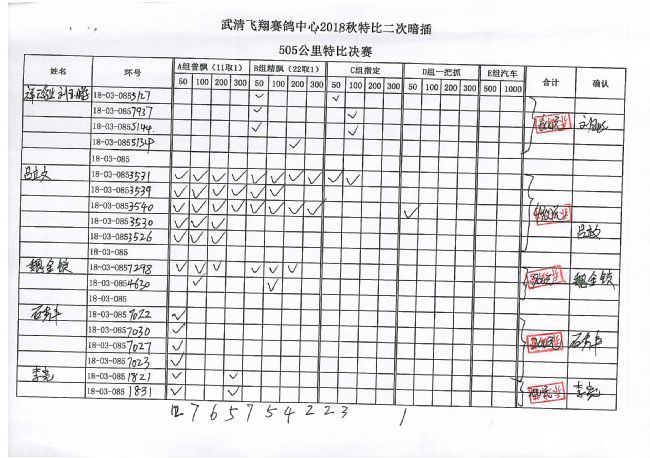 武清飞翔赛鸽中心2018秋特比二次暗插
505公里特比决赛
姓名 环号 A组普飘（11取1） B组精飘（22取1） C组指定 D组一把抓 E组汽车 合计 确认
50 100 200 300 50 100 200 300 50 100 200 300 50 100 200 300 500 1000
18-03-0855127 ✓ ✓
18-03-0857937 ✓ ✓
18-03-0855144 ✓ ✓
18-03-0855134 ✓
18-03-085
吕立文 18-03-0853531 ✓ ✓ ✓ ✓ ✓ ✓ ✓ ✓ ✓ ✓
18-03-0853539 ✓ ✓ ✓ ✓ ✓ ✓
18-03-0853540 ✓ ✓ ✓ ✓ ✓ ✓ ✓ ✓ ✓
18-03-0853530 ✓ ✓ ✓
18-03-0853526 ✓ ✓ ✓ 吕立文
18-03-085
魏金锁 18-03-0857298 ✓ ✓ ✓ ✓ ✓ ✓ 魏金锁
18-03-0854630 ✓ ✓
18-03-085
18-03-0857022 ✓
18-03-0857030 ✓
18-03-0857027 ✓
18-03-0857023 ✓
李亮 18-03-0851821 ✓ ✓ 李亮
18-03-0851831 ✓ ✓
12 7 6 5 7 5 4 2 2 3 1